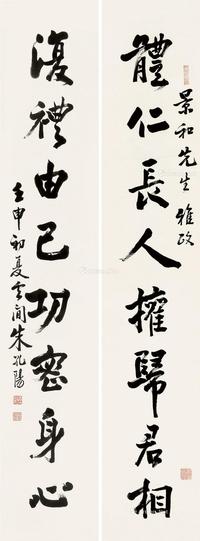 景和先生雅政
體仁長人權歸君相
復禮由己功密身心
壬申初夏云間朱孔陽